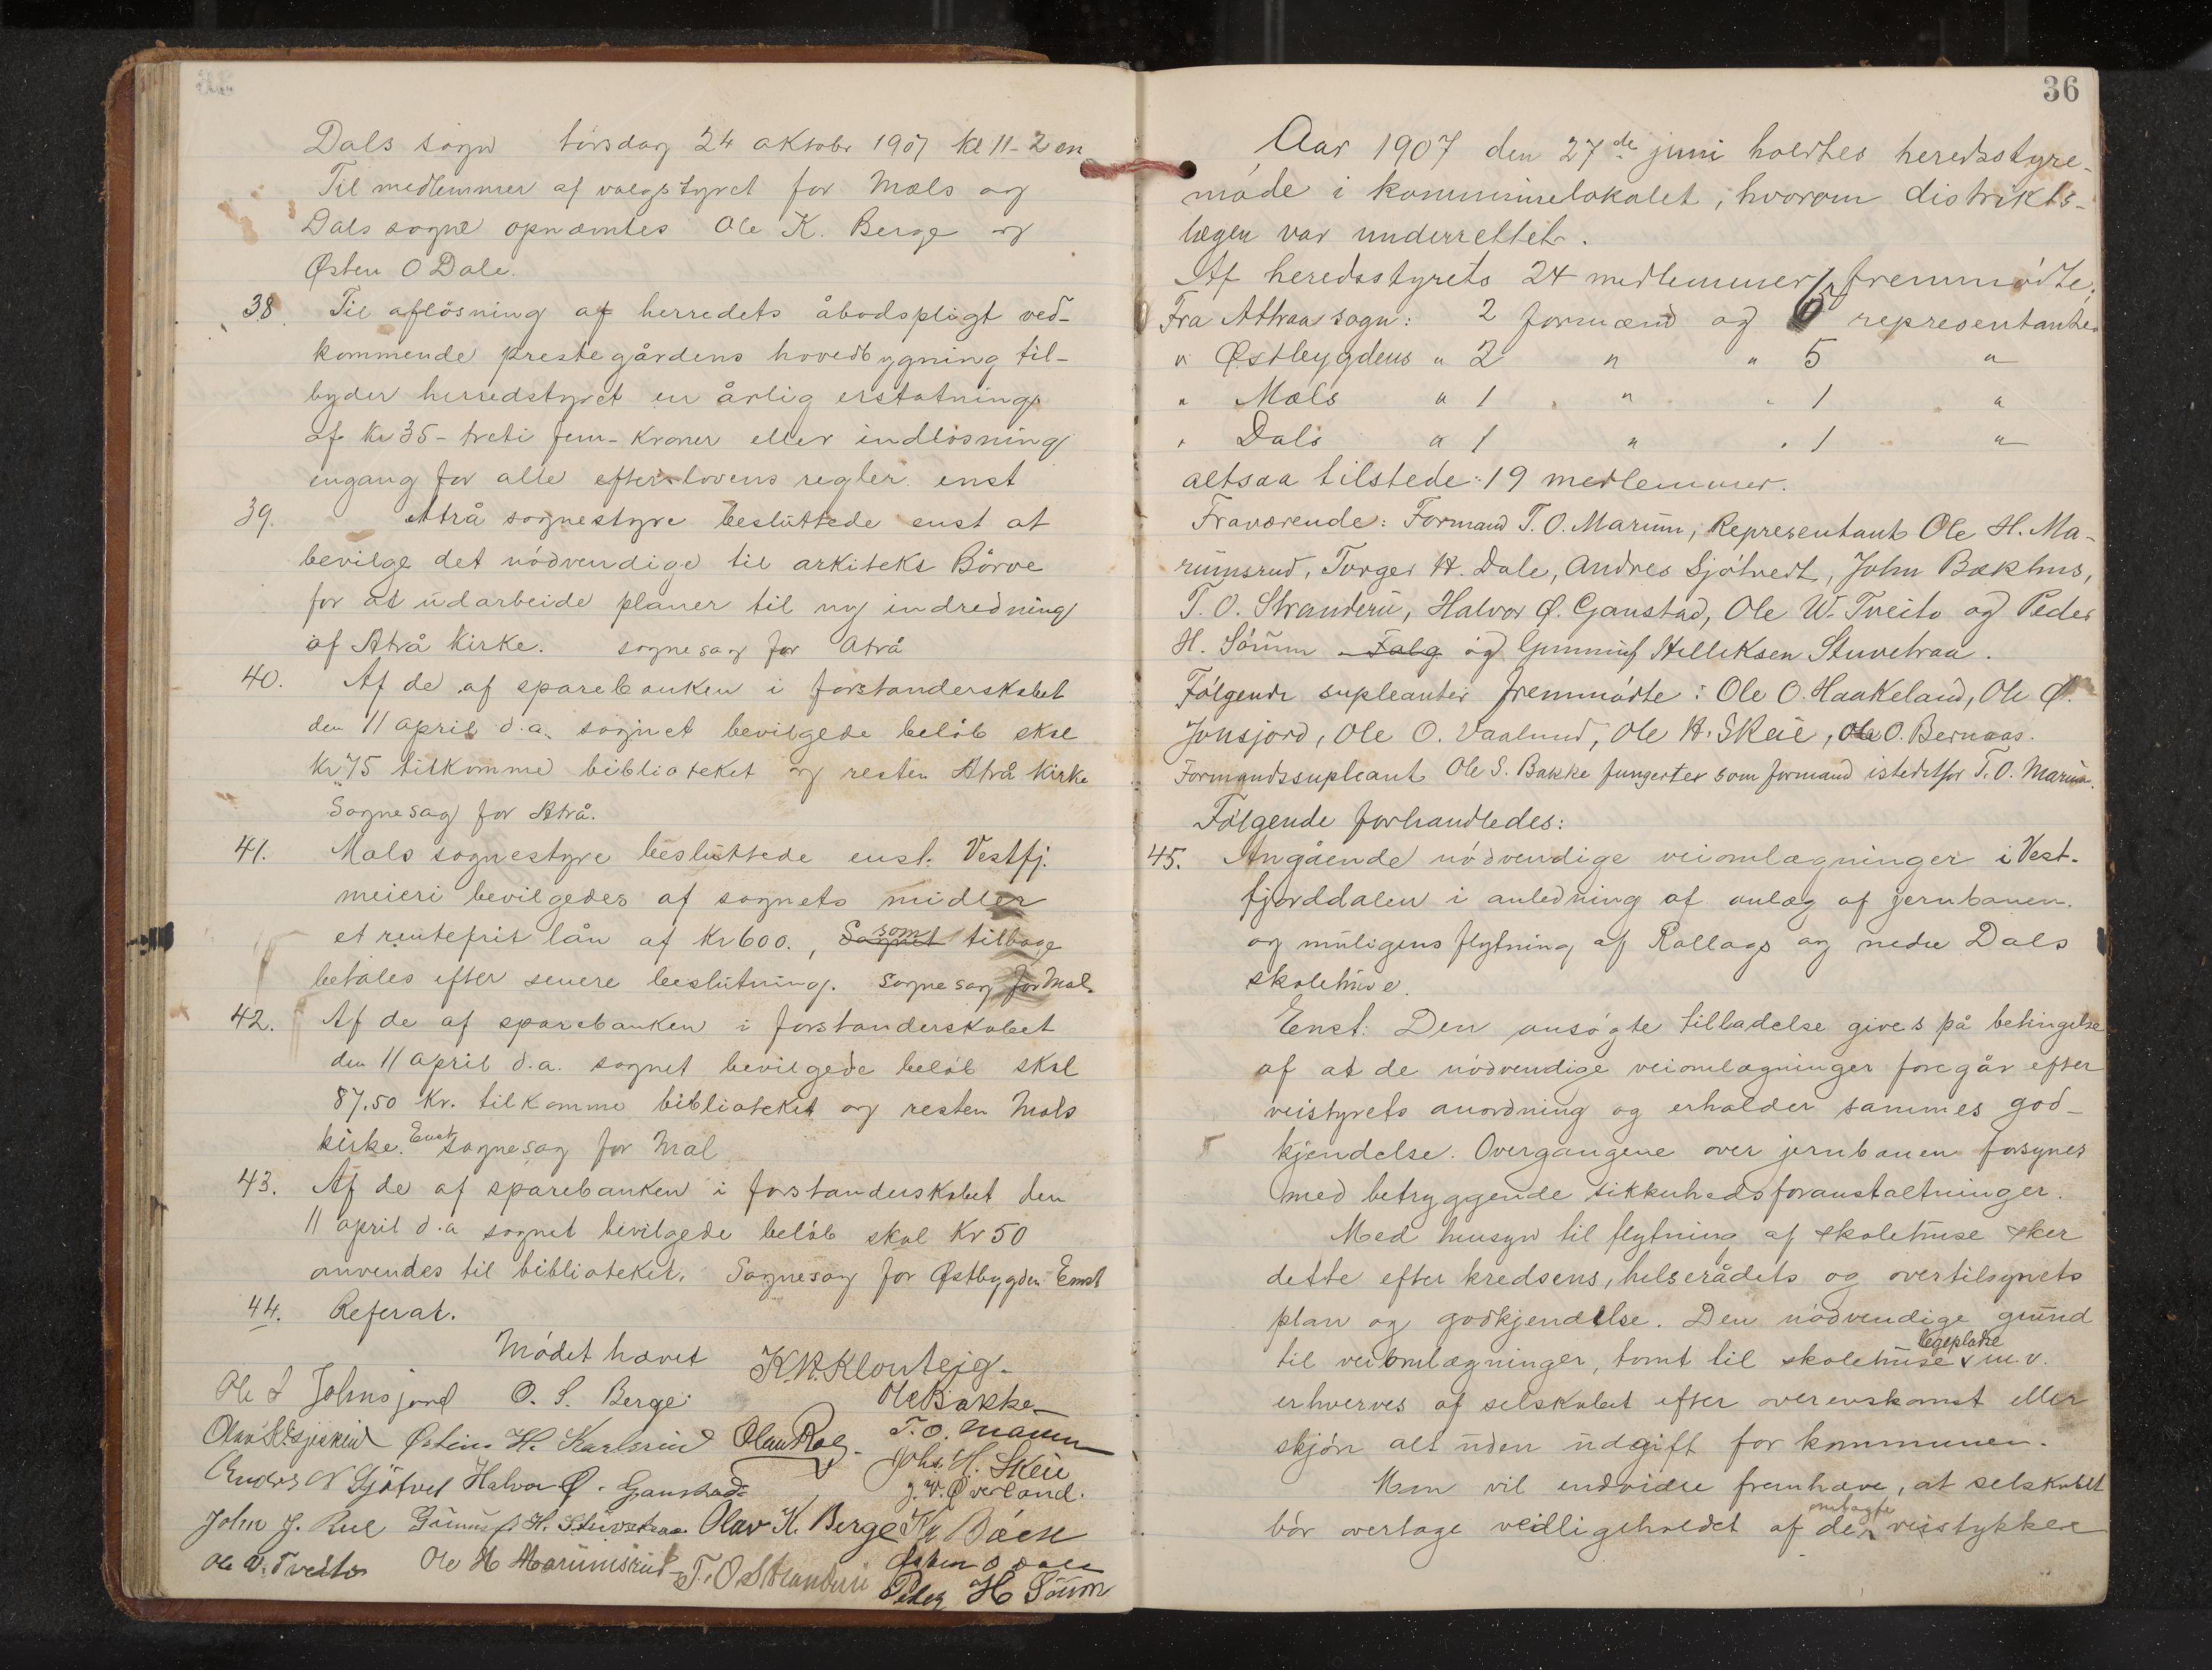 Dals sogn torsdag 24 oktobr 1907 kl 11-2 em
Til medlemmer af valgstyret for Mæls og
Dals sogne opnæmtes Ole K. Berge og
Østen O Dale.
38. Til aflösning af herredets åbodspligt ved-
kommende prestegårdens hovedbygning til-
byder herredstyret en årlig erstatning
af Kr 35 - treti fem - Kroner eller indlösning
engang for alle efter lovens regler. enst
39. Atrå sognestyre besluttede enst at
bevilge det nödvendige til arkitekt Börve
for at udarbeide planer til ny indredning
af Atrå Kirke. sognesag for Atrå
40. Af de af sparebanken i forstanderskabet
den 11 april d.a. sognet bevilgede belöb skal
Kr 75 tilkomme biblioteket og resten Atrå Kirke
Sognesag for Atrå.
41. Mæls sognestyre besluttede enst. Vestfj.
meieri bevilgedes af sognets midler
et rentefrit lån af Kr 600., Sognet som tilbage
betales efter senere beslutning. Sognesag for Mæl.
42. Af de af sparebanken i forstanderskabet
den 11 april d.a. sognet bevilgede belöb skal
87.50 Kr. tilkomme biblioteket og resten Mæls
kirke. Enst sognesag for Mæl
43. Af de af sparebanken i forstanderskabet den
11 april d.a sognet bevilgede belöb skal Kr 50
anvendes til biblioteket. Sognesag for Østbygden Enst
44. Referat.
Mödet hævet
K.N. Klonteig
Ole J Johnsjord O. S. Berge Ole Bakke
Østein H. Karlsrud Olav Roe T. O. Marum
Johs. H. Skeie
Anders N Sjötvet Halvor Ø. Gaustad J. V. Øverland.
John J. Rue Gunnulf H. Stuvetraa Olav K. Berge Kn Báen
Ole W. Tveito Ole H Marumsrud T. O Stranderu Østen O Dale
Peder H Sörum
36
Aar 1907 den 27de juni holdtes heredsstyre-
möde i kommunelokalet, hvorom distrikts-
lægen var underrettet.
Af heredsstyrets 24 medlemmer fremmödte:
Fra Attraa sogn: 2 formænd og 6 representanter
" Østbygdens " 2 " " 5 "
" Mæls " 1 " " 1 "
" Dals " 1 " " 1 "
altsaa tilstede: 19 medlemmer.
Fraværende: Formand T. O. Marum, Representant Ole H. Ma-
rumsrud, Torger H. Dale, Andres Sjötvedt, John Bækhus,
T. O. Stranderu, Halvor Ø. Gaustad, Ole W. Tveito og Peder
H. Sörum Falg og Gunnulf Helleksen Stuvetraa.
Fölgende supleanter fremmödte: Ole O. Haakeland, Ole Ø.
Jonsjord, Ole O. Vaalund, Ole H. Skeie, Ole O. Bernaas.
Formandssupleant Ole S. Bakke fungerter som formand istedetfor T. O. Marum.
Fölgende forhandledes:
45. Angående nödvendige veiomlægninger i Vest-
fjorddalen i anledning af anlæg af jernbanen.
og muligens flytning af Rollags og nedre Dals
skolehuse.
Enst: Den ansögte tilladelse gives på betingelse
af at de nödvendige veiomlægninger foregår efter
veistyrets anordning og erholder sammes god-
kjendelse. Overgangene over jernbanen forsynes
med betryggende sikkerhedsforanstaltninger.
Med hensyn til flytning af skolehuse sker
dette efter kredsens, helserådets og overtilsynets
plan og godkjendelse. Den nödvendige grund
til veiomlægninger, tomt til skolehuse legepladse m.v.
erhverves af selskabet efter overenskomst eller
skjön alt uden udgift for kommunen.
Man vil endvidre fremhæve, at selskabet
bör overtage vedligeholdet af de omlagte veistykker